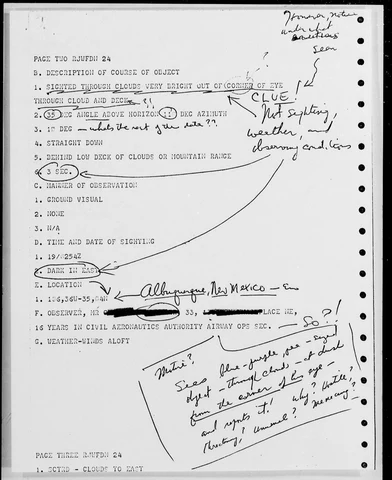 under what
conditions
Seen
PAGE TWO RJUFDN 24
B. DESCRIPTION OF COURSE OF OBJECT
1. SIGHTED THROUGH CLOUDS VERY BRIGHT OUT OF CORNER OF EYE
THROUGH CLOUD AND DECK !!
CLUE!
Not sighting,
weather, and
observing conditions
2. 35 DEG ANGLE ABOVE HORIZON DEG AZIMUTH
3. DEG — whats the rest of the data??
4. STRAIGHT DOWN
5. BEHIND LOW DECK OF CLOUDS OR MOUNTAIN RANGE
6. 3 SEC.
C. MANNER OF OBSERVATION
1. GROUND VISUAL
2. NONE
3. N/A
D. TIME AND DATE OF SIGHYING
1. 19/0254Z
2. DARK IN EAST
E. LOCATION
Albuquerque, New Mexico —
1. 106,36W-35,04N
F. OBSERVER, 33, PLACE NE,
16 YEARS IN CIVIL AERONAUTICS AUTHORITY AIRWAY OPS SEC. — So??!
G. WEATHER-WINDS ALOFT
Motive?
Sees blue-purple,
object — through clouds — at dusk
from the corner of his eye —
and reports it! Why? Hostile?
Unusual?
PAGE THREE RJUFDN 24
1. SCTRD - CLOUDS TO EAST